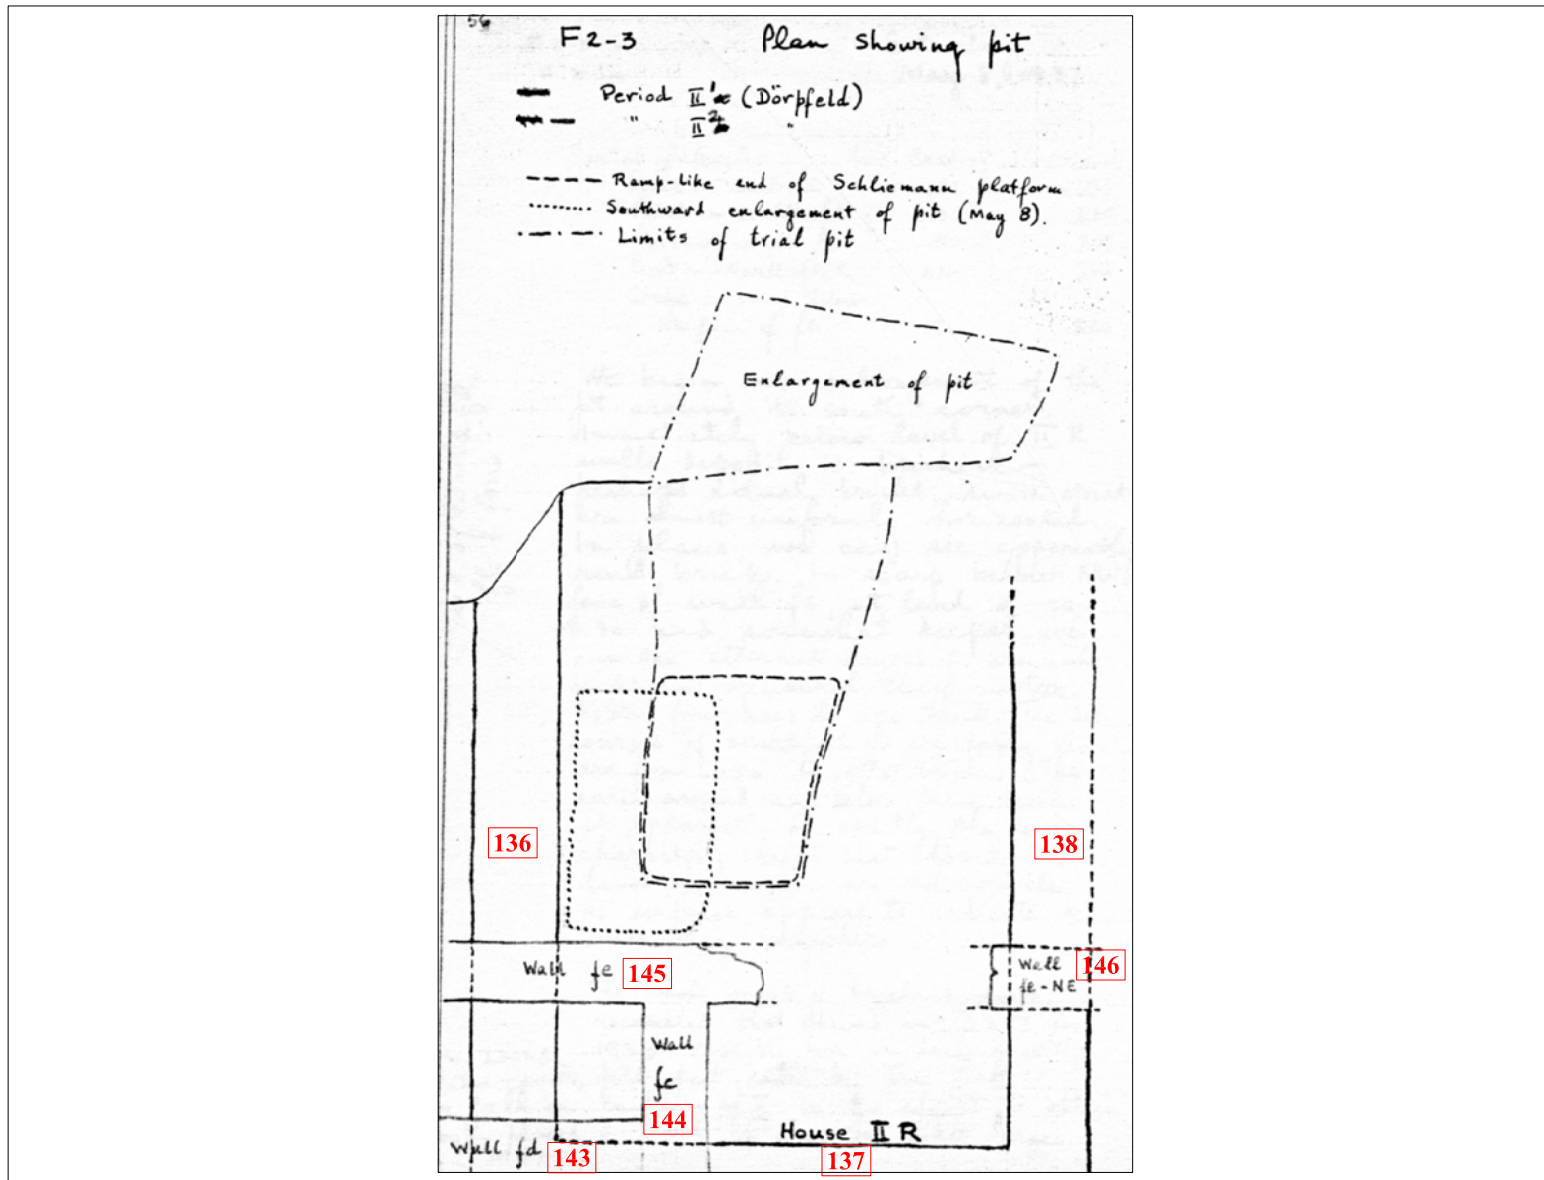 56
F2-3 Plan showing pit
Period II 1 (Dörpfeld)
" II 2 "
Ramp-like end of Schliemann platform
Southward enlargement of pit (May 8).
Limits of trial pit
Enlargement of pit
136
138
Wall fe 145
Wall 146
fe-NE
Wall
fc
144
House II R
Wall fd 143
137